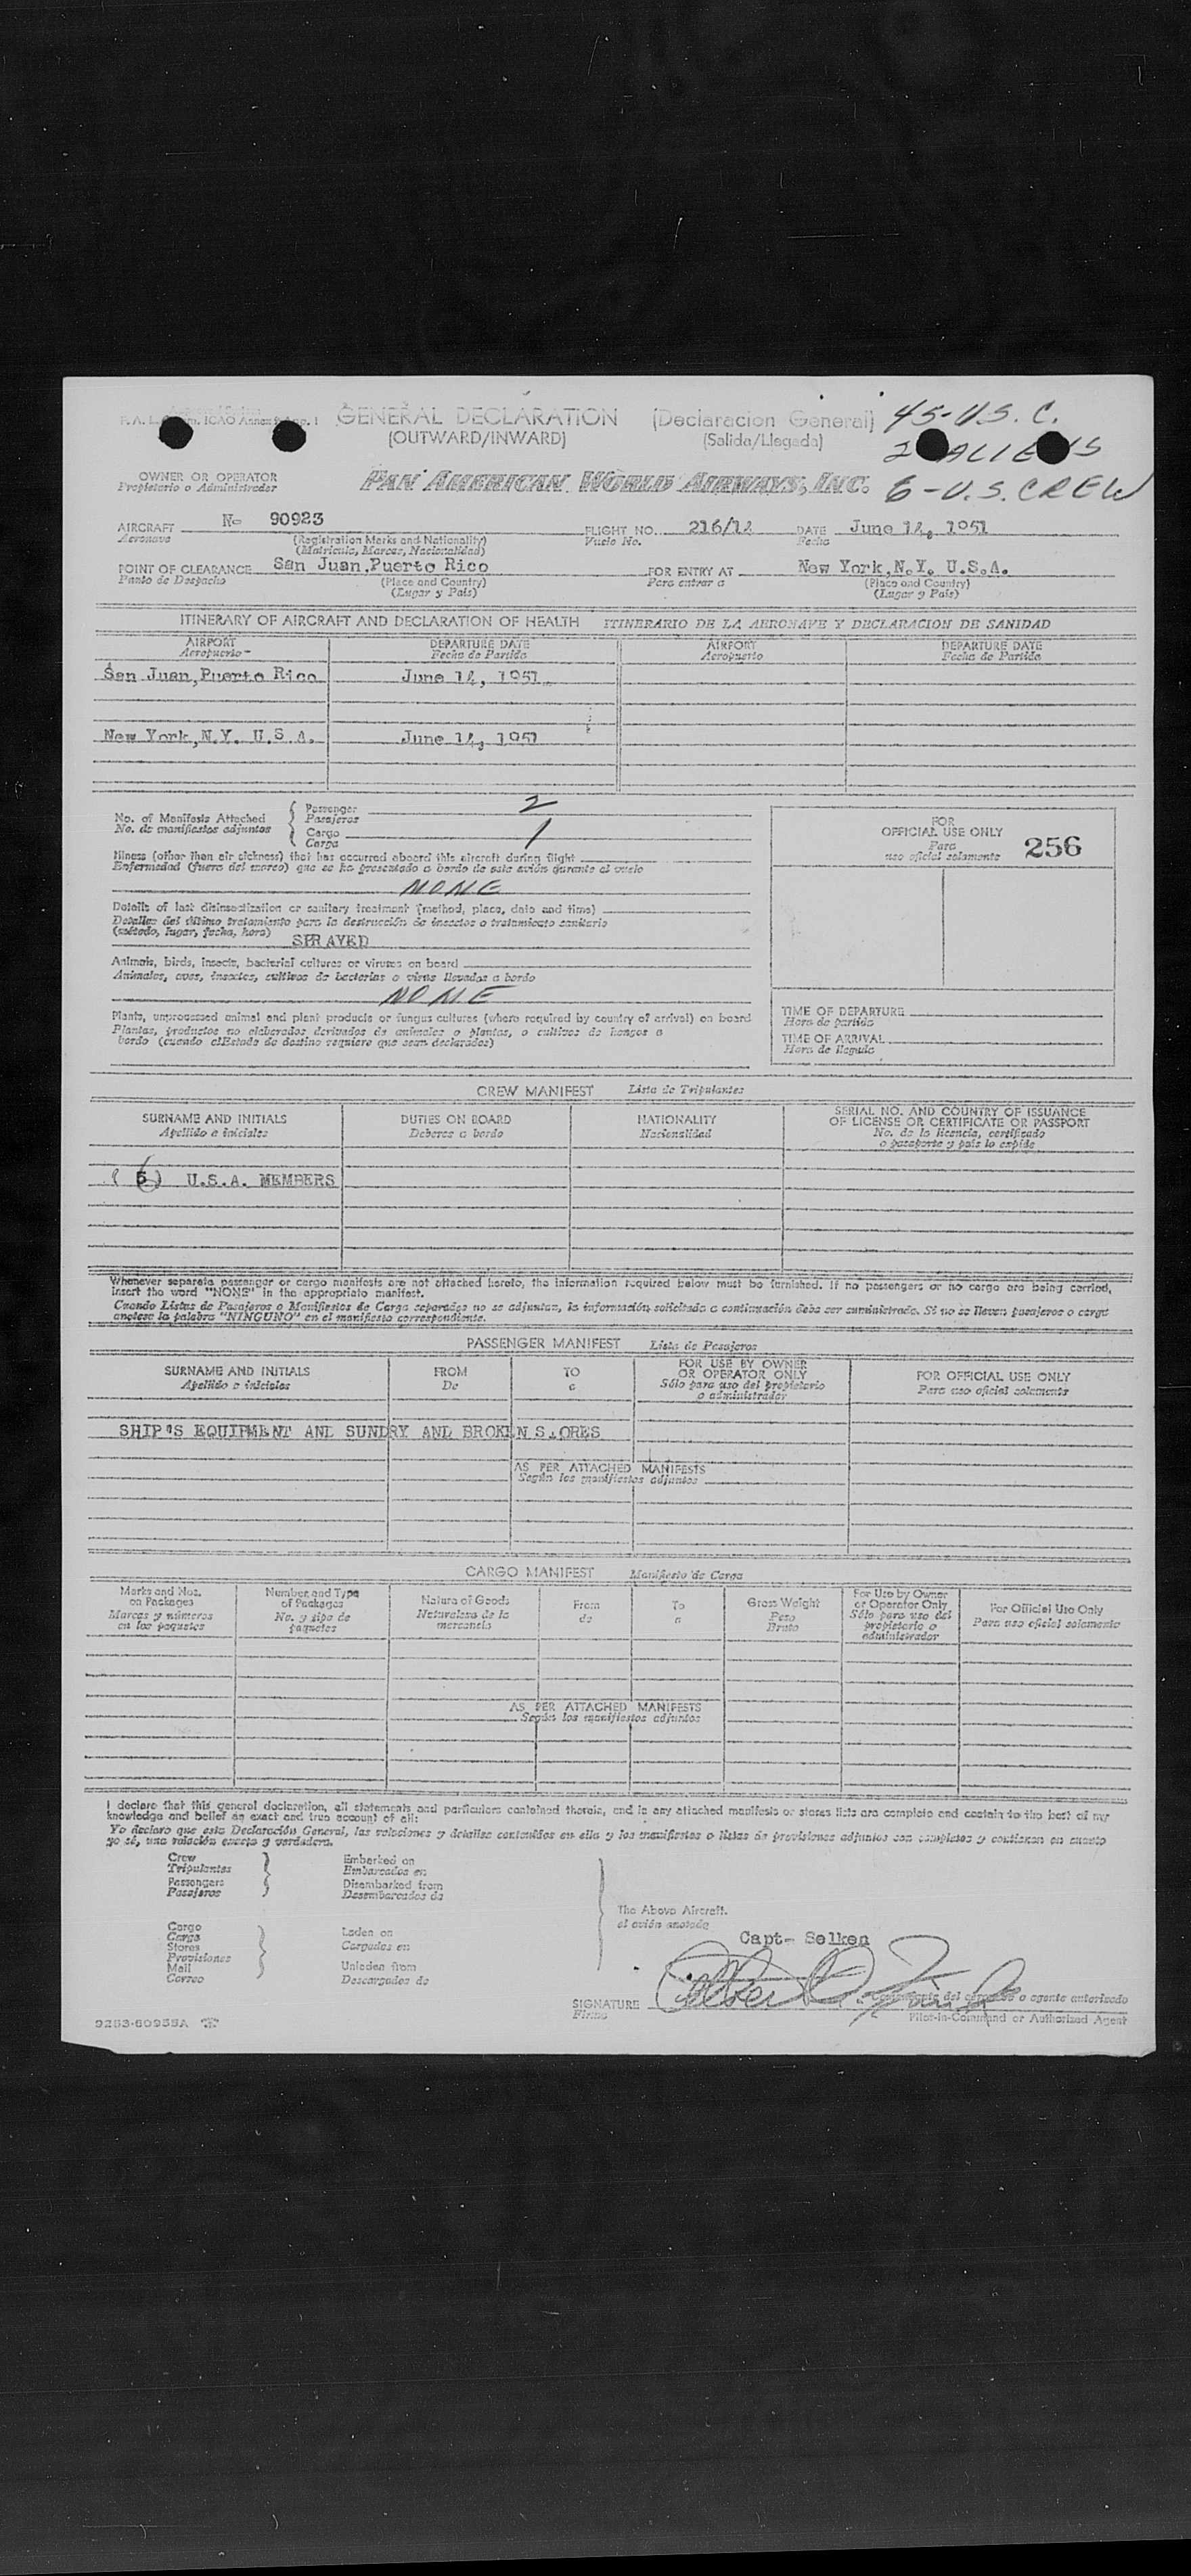 GENERAL DECLARATION (Declaracion General)
(OUTWARD/INWARD) (Salida/Llegada)
45-U.S.C.
2 ALIENS
6-U.S. CREW
OWNER OR OPERATOR
Propietario o Administrador
PAN AMERICAN WORLD AIRWAYS, INC.
AIRCRAFT N- 90923 FLIGHT NO. 216/14 DATE June 14, 1951
Aeronave (Registration Marks and Nationality) Vuelo No. Fecha
(Matricula, Marcas, Nacionalidad)
POINT OF CLEARANCE San Juan,Puerto Rico FOR ENTRY AT New York,N.Y. U.S.A.
Punto de Despacho (Place and Country) Para entrar a (Place and Country)
(Lugar y País) (Lugar y País)
ITINERARY OF AIRCRAFT AND DECLARATION OF HEALTH ITINERARIO DE LA AERONAVE Y DECLARACION DE SANIDAD
AIRPORT DEPARTURE DATE AIRPORT DEPARTURE DATE
Aeropuerto Fecha de Partida Aeropuerto Fecha de Partida
San Juan,Puerto Rico June 14, 1951
New York,N.Y. U.S.A. June 14, 1951
No. of Manifests Attached
No. de manifiestos adjuntos
Passenger 2
Pasajeros
Cargo 1
Carga
Illness (other than air sickness) that has occurred aboard this aircraft during flight
Enfermedad (fuera del mareo) que se ha presentado a bordo de este avión durante el vuelo
NONE
Details of last disinsectization or sanitary treatment (method, place, date and time)
Detalles del último tratamiento para la destrucción de insectos o tratamiento sanitario
(método, lugar, fecha, hora)
SPRAYED
Animals, birds, insects, bacterial cultures or viruses on board
Animales, aves, insectos, cultivos de bacterias o virus llevados a bordo
NONE
Plants, unprocessed animal and plant products or fungus cultures (where required by country of arrival) on board
Plantas, productos no elaborados derivados de animales o plantas, o cultivos de hongos a
bordo (cuando el Estado de destino requiere que sean declarados)
FOR
OFFICIAL USE ONLY
Para
uso oficial solamente
256
TIME OF DEPARTURE
Hora de partida
TIME OF ARRIVAL
Hora de llegada
CREW MANIFEST Lista de Tripulantes
SURNAME AND INITIALS DUTIES ON BOARD NATIONALITY SERIAL NO. AND COUNTRY OF ISSUANCE
OF LICENSE OR CERTIFICATE OR PASSPORT
Apellido e iniciales Deberes a bordo Nacionalidad No. de la licencia, certificado
o pasaporte y país lo expide
( 6 ) U.S.A. MEMBERS
Whenever separate passenger or cargo manifests are not attached hereto, the information required below must be furnished. If no passengers or no cargo are being carried,
insert the word "NONE" in the appropriate manifest.
Cuando Listas de Pasajeros o Manifiestos de Carga separados no se adjuntan, la información solicitada a continuación debe ser suministrada. Si no se llevan pasajeros o carga
anótese la palabra "NINGUNO" en el manifiesto correspondiente.
PASSENGER MANIFEST Lista de Pasajeros
SURNAME AND INITIALS FROM TO FOR USE BY OWNER
OR OPERATOR ONLY FOR OFFICIAL USE ONLY
Apellido e iniciales De a Sólo para uso del propietario
o administrador Para uso oficial solamente
SHIP'S EQUIPMENT AND SUNDRY AND BROKEN STORES
AS PER ATTACHED MANIFESTS
Según los manifiestos adjuntos
CARGO MANIFEST Manifiesto de Carga
Marks and Nos.
on Packages
Marcas y números
en los paquetes
Number and Type
of Packages
No. y tipo de
paquetes
Nature of Goods
Naturaleza de la
mercancia
From
de
To
a
Gross Weight
Peso
Bruto
For Use by Owner
or Operator Only
Sólo para uso del
propietario o
administrador
For Official Use Only
Para uso oficial solamente
AS PER ATTACHED MANIFESTS
Según los manifiestos adjuntos
I declare that this general declaration, all statements and particulars contained therein, and in any attached manifests or stores lists are complete and contain to the best of my
knowledge and belief an exact and true account of all:
Yo declaro que esta Declaración General, las relaciones y detalles contenidos en ella y los manifiestos o listas de provisiones adjuntos son completos y contienen en cuanto
yo sé, una relación exacta y verdadera.
Crew
Tripulantes
Passengers
Pasajeros
Embarked on
Embarcados en
Disembarked from
Desembarcados de
Cargo
Carga
Stores
Provisiones
Mail
Correo
Laden on
Cargados en
Unladen from
Descargados de
The Above Aircraft.
el avión anotado
Capt- Selken
SIGNATURE
Firma
Comandante del aeronave o agente autorizado
Pilot-in-Command or Authorized Agent
9283-60955A